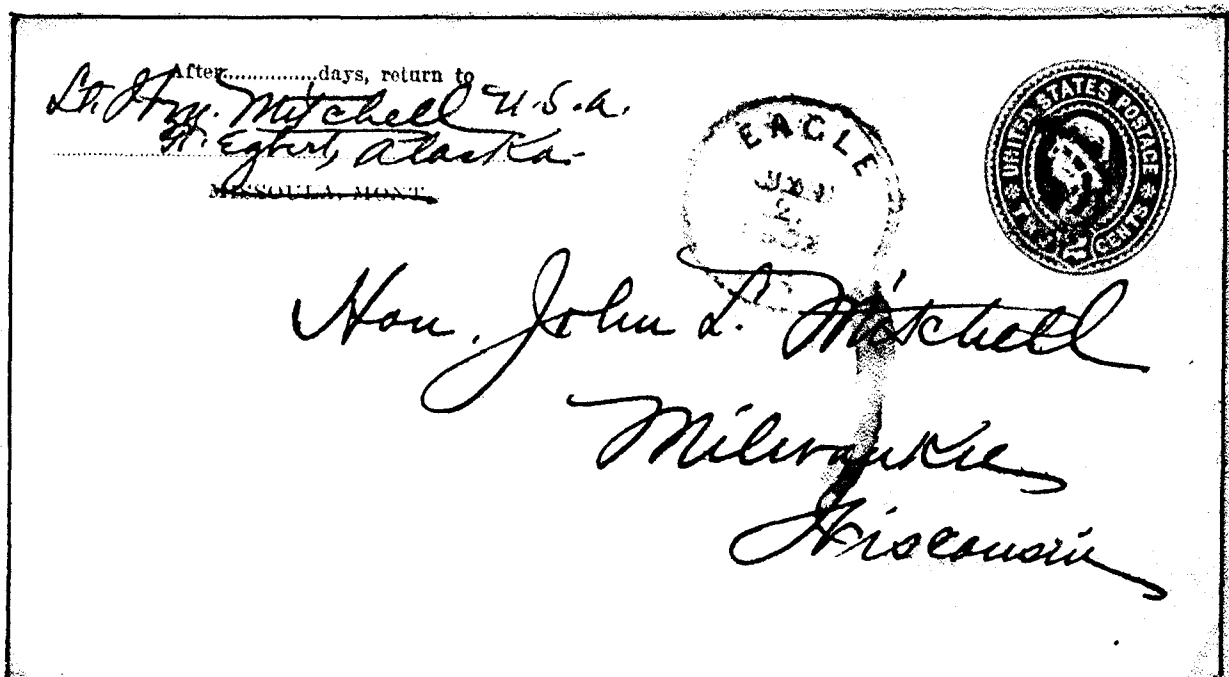 After...............days, return to
Lt. Wm. Mitchell U.S.A.
Ft. Egbert, Alaska.
MISSOULA, MONT.
EAGLE
2
UNITED STATES POSTAGE
TWO 2 CENTS
Hon. John L. Mitchell
Milwaukie
Wisconsin